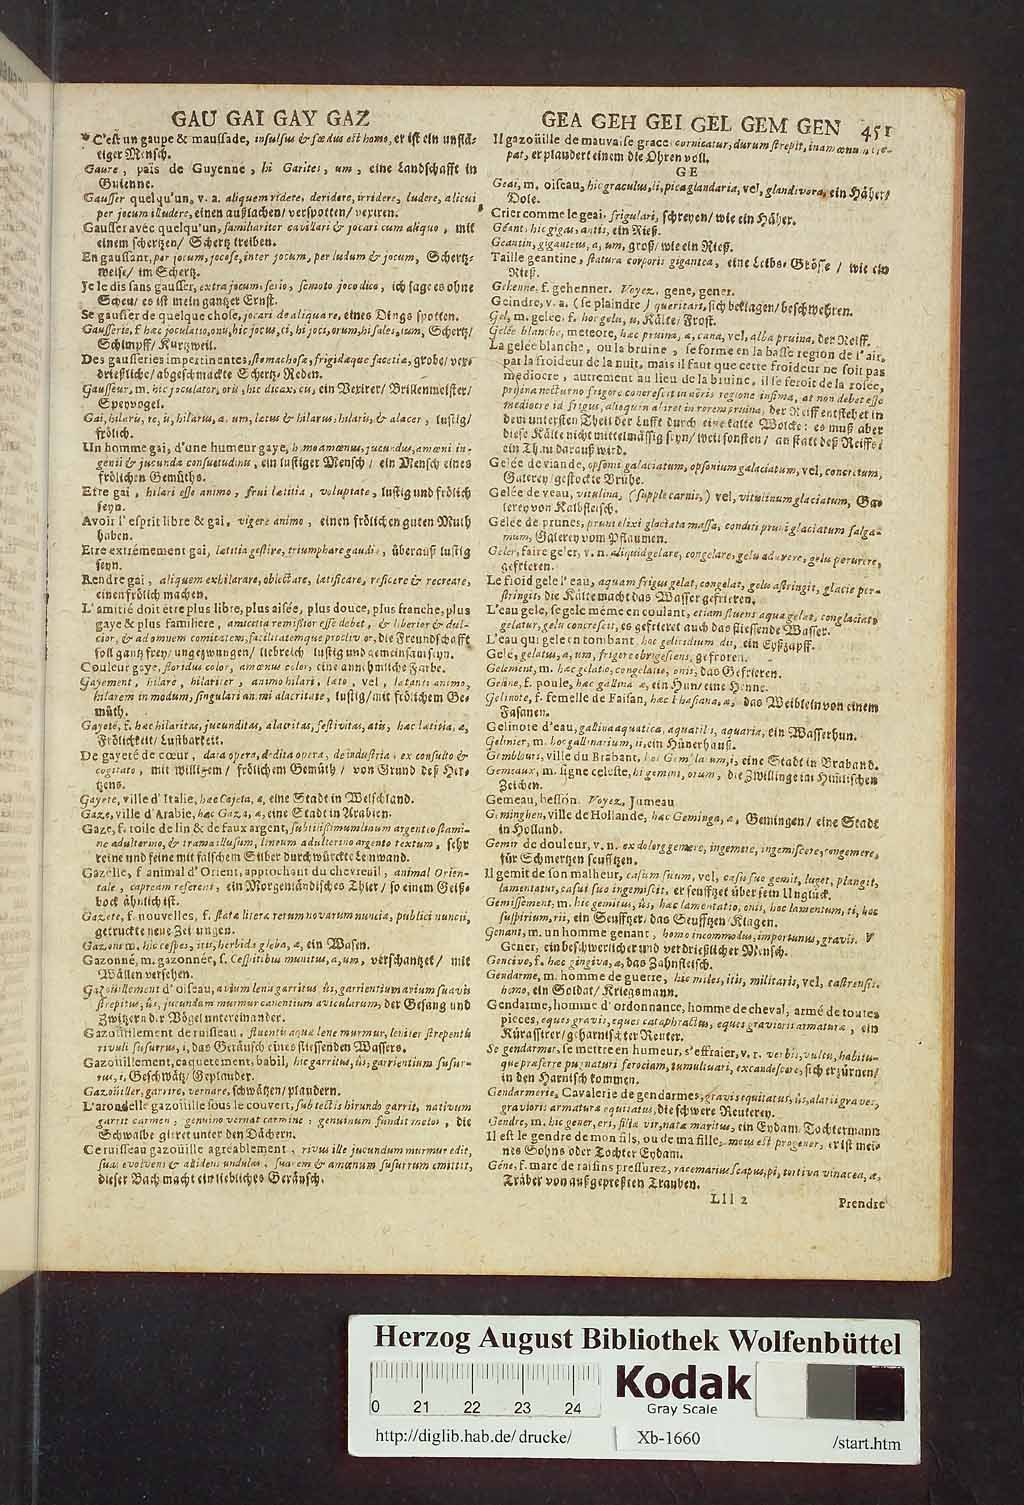 GAU GAI GAY GAZ
C'est un gaupe & maussade, insulsus & fœdus est homo, er ist ein unflä-
tiger Mensch.
Gaure, païs de Guyenne, hi Garites, um, eine Landschafft in
Guienne.
Gausser quelqu'un, v. a. aliquem ridere, deridere, irridere, ludere, alicui
per jocum illudere, einen außlachen/ verspotten/ vexiren.
Gausser avec quelqu'un, familiariter cavillari & jocari cum aliquo, mit
einem schertzen/ Schertz treiben.
En gaussant, per jocum, jocose, inter jocum, per ludum & jocum, Schertz-
weise/ im Schertz.
Je le dis sans gausser, extra jocum, serio, semoto joco dico, ich sage es ohne
Scheu/ es ist mein gantzer Ernst.
Se gausser de quelque chose, jocari de aliquare, eines Dings spotten.
Gausserie, f. hæc joculatio, onis, hic jocus, ci, hi joci, orum, hi sales, ium, Schertz/
Schimpff/ Kurtzweil.
Des gausseries impertinentes, stomachosæ, frigidæque facetiæ, grobe/ ver-
drießliche/ abgeschmackte Schertz-Reden.
Gausseur, m. hic joculator, oris, hic dicax, cis, ein Vexirer/ Brillenmeister/
Speyvogel.
Gai, hilaris, re, is, hilarus, a, um, lætus & hilarus, hilaris, & alacer, lustig/
frölich.
Un homme gai, d'une humeur gaye, homo amœnus, jucundus, amœni in-
genii & jucundæ consuetudinis, ein lustiger Mensch/ ein Mensch eines
frölichen Gemüths.
Etre gai, hilari esse animo, frui lætitia, voluptate, lustig und frölich
seyn.
Avoir l'esprit libre & gai, vigere animo, einen frölichen guten Muth
haben.
Etre extrémement gai, lætitia gestire, triumphare gaudio, überauß lustig
seyn.
Rendre gai, aliquem exhilarare, oblectare, lætificare, reficere & recreare,
einen frölich machen.
L'amitié doit être plus libre, plus aisée, plus douce, plus franche, plus
gaye & plus familiere, amicitia remissior esse debet, & liberior & dul-
cior, & ad omnem comitatem, facilitatemque proclivior, die Freundschafft
soll gantz frey/ ungezwungen/ liebreich lustig und gemeinsam seyn.
Couleur gaye, floridus color, amœnus color, eine annehmliche Farbe.
Gayement, hilare, hilariter, animo hilari, læto, vel, lætanti animo,
hilarem in modum, singulari animi alacritate, lustig/ mit frölichem Ge-
müth.
Gayeté, f. hæc hilaritas, jucunditas, alacritas, festivitas, atis, hæc lætitia, æ,
Frölichkeit/ Lustbarkeit.
De gayeté de cœur, data opera, dedita opera, de industria, ex consulto &
cogitato, mit willigem/ frölichem Gemüth/ von Grund deß Her-
tzens.
Gayete, ville d'Italie, hæc Cajeta, æ, eine Stadt in Welschland.
Gaze, ville d'Arabie, hæc Gaza, æ, eine Stadt in Arabien.
Gaze, f. toile de lin & de faux argent, subtilissimum linum argenteo stami-
ne adulterino, & trama illusum, lineum adulterino argento textum, sehr
reine und feine mit falschem Silber durchwürckte Leinwand.
Gazelle, f. animal d'Orient, approchant du chevreuil, animal Orien-
tale, capream referens, ein Morgenländisches Thier/ so einem Geiß-
bock ähnlich ist.
Gazete, f. nouvelles, f. stata litera rerum novarum nuncia, publici nuncii,
getruckte neue Zeitungen.
Gazon m. hic cespes, itis, herbida gleba, æ, ein Wasen.
Gazonné, m. gazonnée, f. Cespitibus munitus, a, um, verschantzet/ mit
Wällen versehen.
Gazoüillement d'oiseau, avium lenis garritus, ûs, garrientium avium suavis
strepitus, ûs, jucundum murmur canentium avicularum, der Gesang und
Zwitzern der Vögel untereinander.
Gazoüillement de ruisseau, fluentis aquæ lene murmur, leniter strepentis
rivuli susurrus, i, das Geräusch eines fliessenden Wassers.
Gazoüillement, caquetement, babil, hic garritus, ûs, garrientium susur-
rus, i, Geschwätz/ Geplauder.
Gazoüiller, garrire, vernare, schwätzen/ plaudern.
L'arondelle gazoüille sous le couvert, sub tectis hirundo garrit, nativum
garrit carmen, genuino vernat carmine, genuinum fundit melos, die
Schwalbe girret unter den Dächern.
Ce ruisseau gazoüille agréablement, rivus ille jucundum murmur edit,
suæ evolvens & allidens undulas, suavem & amœnum susurrum emittit,
dieser Bach macht ein liebliches Geräusch.
GEA GEH GEI GEL GEM GEN 451
Il gazoüille de mauvaise grace, cornicatur, durum strepit,
pat, er plaudert einem die Ohren voll.
GE
Geai, m. oiseau, hic graculus, li, pica glandaria, vel, glandivora, ein Häher/
Dole.
Crier comme le geai, frigulari, schreyen/ wie ein Häher.
Géant, hic gigas, antis, ein Rieß.
Geantin, giganteus, a, um, groß/ wie ein Rieß.
Taille geantine, statura corporis gigantea, eine Leibs-Grösse/ wie ein
Rieß.
Gehenne, f. gehenner. Voyez, gene, gener.
Geindre, v. a. (se plaindre) queritari, sich beklagen/ beschwehren.
Gel, m. gelée. f. hoc gelu, u, Kälte/ Frost.
Gelée blanche, meteore, hæc pruina, æ, cana, vel, alba pruina, der Reiff.
La gelée blanche, ou la bruine, se forme en la basse region de l'air,
par la froideur de la nuit, mais il faut que cette froideur ne soit pas
médiocre, autrement au lieu de la bruine, il se feroit de la rosée,
pruina nocturno frigore concrescit in aëris regione infima, at non debet esse
mediocre id frigus, alioquin abiret in rorem pruina, der Reiff entstehet in
dem untersten Theil der Lufft durch eine kalte Wolcke: es muß aber
diese Kälte nicht mittelmässig seyn/ weil sonsten/ an statt deß Reiffes
ein Thau darauß wird.
Gelée de viande, opsonii galaciatum, opsonium galaciatum, vel, concretum,
Galerey/ gestockte Brühe.
Gelée de veau, vitulina, (supple carnis,) vel, vitulinum glaciatum, Ga-
lerey von Kalbfleisch.
Gelée de prunes, pruni elixi glaciata massa, conditi pruni glaciatum salga-
mum, Galerey vom Pflaumen.
Geler, faire geler, v. n. aliquid gelare, congelare, gelu adurere, gelu perurere,
gefrieren.
Le froid gele l'eau, aquam frigus gelat, congelat, gelu astringit, glacie per-
stringit, die Kälte macht das Wasser gefrieren.
L'eau gele, se gele même en coulant, etiam fluens aqua gelat, conglaciat,
gelatur, gelu concrescit, es gefrieret auch das fliessende Wasser.
L'eau qui gele en tombant, hæc gelicidium dii, ein Eyßzapff.
Gelé, gelatus, a, um, frigore obrigescens, gefroren.
Gelement, m. hæc gelatio, congelatio, onis, das Gefrieren.
Geline, f. poule, hæc gallina æ, ein Hun/ eine Henne.
Gelinote, f. femelle de Faisan, hæc Phasiana, æ, das Weiblein von einem
Fasanen.
Gelinote d'eau, gallina aquatica, aquatilis, aquaria, ein Wasserhun.
Gelinier, m. hoc gallinarium, ii, ein Hünerhauß.
Gemblours, ville du Brabant, hoc Gemblaum, i, eine Stadt in Braband.
Gemeaux, m. signe celeste, hi gemini, orum, die Zwillinge im Himlischen
Zeichen.
Gemeau, besson. Voyez, Jumeau
Geminghen, ville de Hollande, hæc Geminga, æ, Gemingen/ eine Stadt
in Holland.
Gemir de douleur, v. n. ex dolore gemere, ingemere, ingemiscere, congemere,
für Schmertzen seufftzen.
Il gemit de son malheur, casum suum, vel, casu suo gemit, luget, plangit,
lamentatur, casui suo ingemiscit, er seufftzet über sein Unglück.
Gemissement, m. hic gemitus, ûs, hæc lamentatio, onis, hoc lamentum, ti, hoc
suspirium, rii, ein Seufftzer/ das Seufftzen Klagen.
Genant, m. un homme genant, homo incommodus, importunus, gravis. V
Gener, ein beschwerlicher und verdrießlicher Mensch.
Gencive, f. hæc gingiva, æ, das Zahnfleisch.
Gendarme, m. homme de guerre, hic miles, itis, militaris, vel, castrensis,
homo, ein Soldat/ Kriegsmann.
Gendarme, homme d'ordonnance, homme de cheval, armé de toutes
pieces, eques gravis, eques cataphractus, eques gravioris armaturæ, ein
Kürassirer/ geharnischter Reuter.
Se gendarmer, se mettre en humeur, s'effraier, v. r. verbis, vultu, habitu-
que præferre pugnaturi ferociam, tumultuari, excandescere, sich erzürnen/
in den Harnisch kommen.
Gendarmerie, Cavalerie de gendarmes, gravis equitatus, ûs, alarii graves,
gravioris armaturæ equitatus, die schwere Reuterey.
Gendre, m. hic gener, eri, filiæ vir, natæ maritus, ein Eydam/ Tochtermann
Il est le gendre de mon fils, ou de ma fille, meus est progener, er ist mei-
nes Sohns oder Tochter Eydam.
Géne, f. marc de raisins pressurez, racemarius scapus, pi, tortiva vinacea, æ,
Träber von außgepreßten Trauben.
Lll 2
Prendre
Herzog August Bibliothek Wolfenbüttel
Kodak
Gray Scale
0 21 22 23 24
http://diglib.hab.de/drucke/
Xb-1660
/start.htm